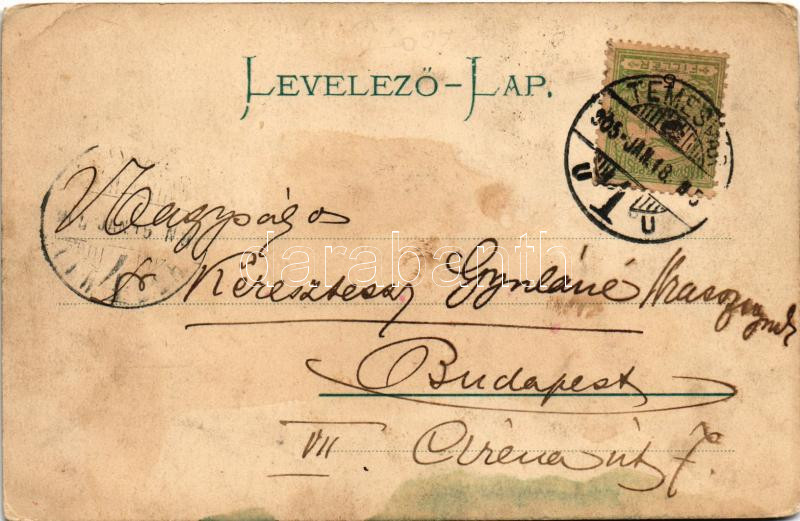 LEVELEZŐ-LAP.
FILLÉR
TEMESVÁR
905 JAN. 18.
Nagyságos
Keresztessy Gyuláné
Budapest
VII. Aréna út 7.
darabanth